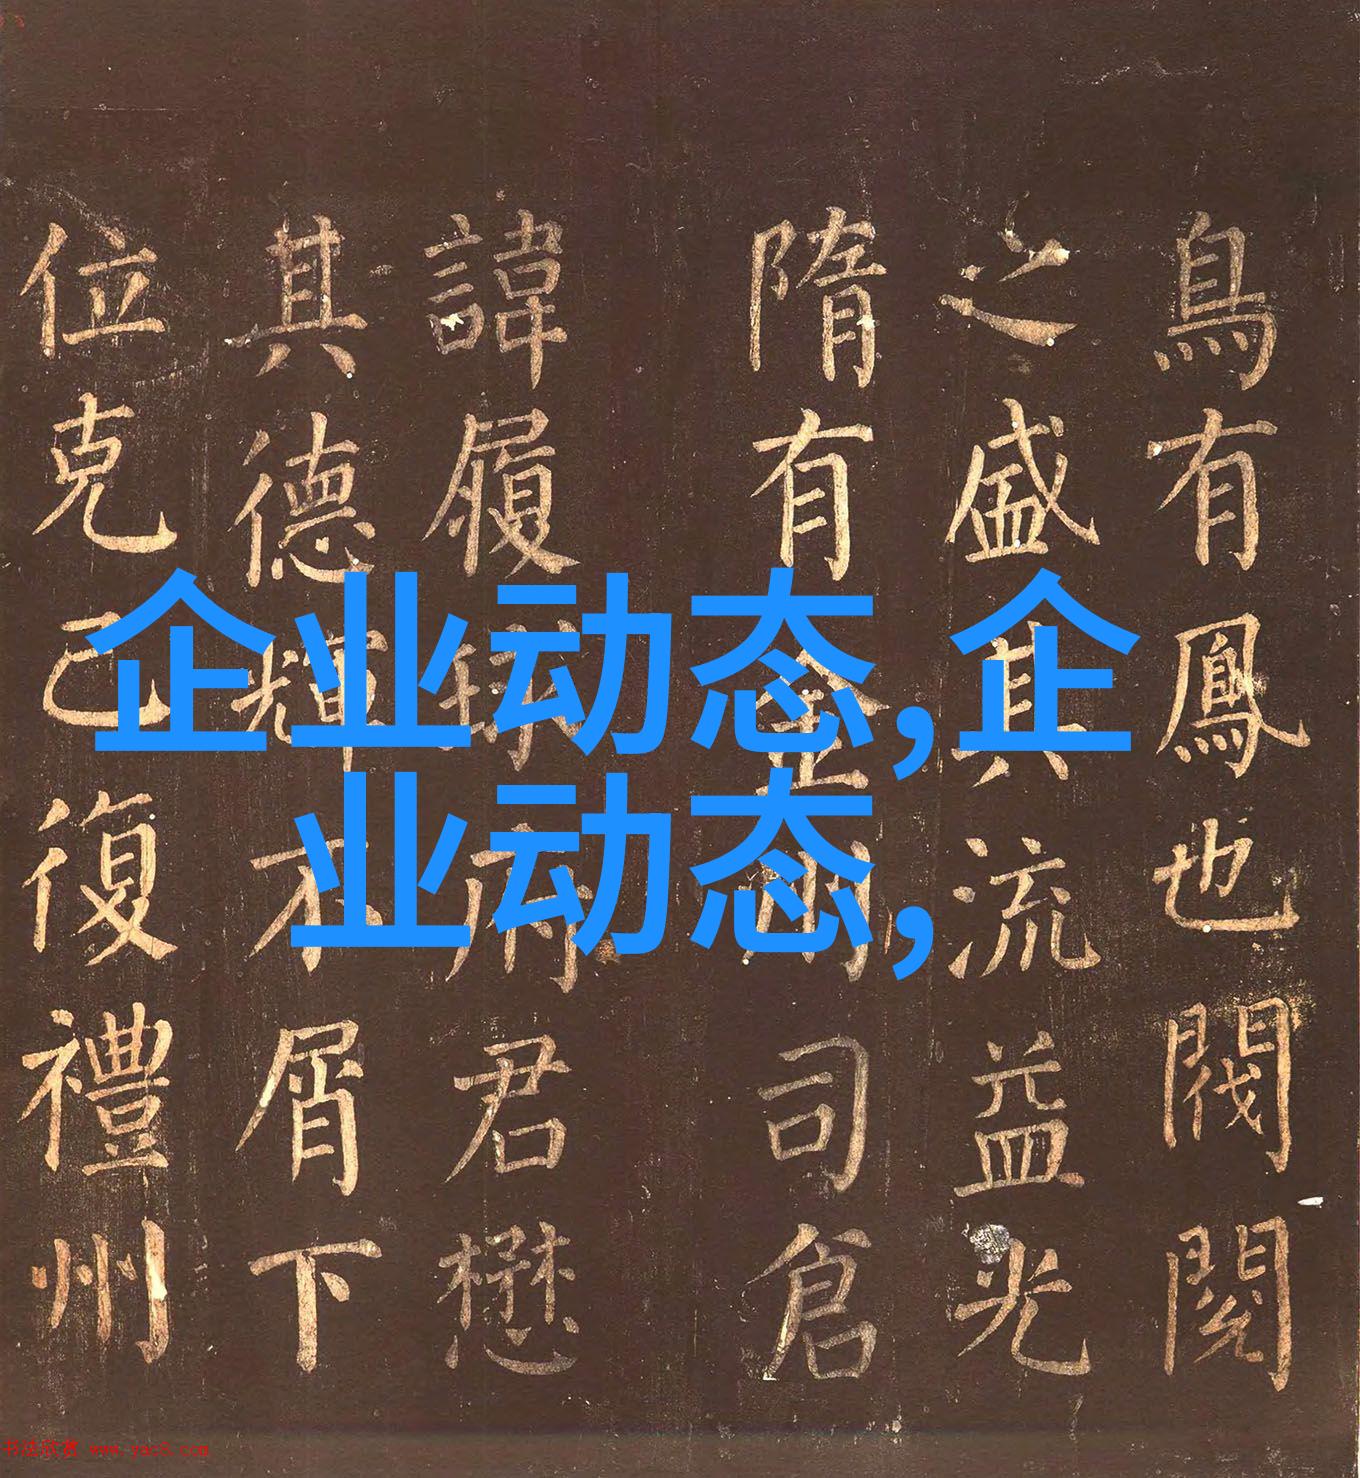 企业动态,企
业动态,
鳥有鳳也閥閱
之盛其流益光
隋有金司倉
諱履府君懋
其德輝不屑下
位克己復禮州
书法欣赏 www.yac8.com